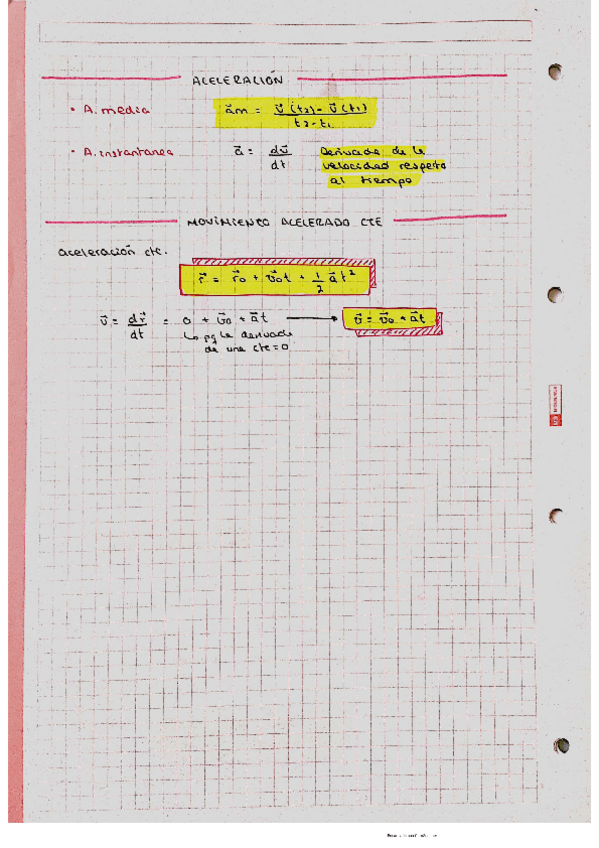 ACELERACIÓN
• A. media a⃗m = v⃗(t2) - v⃗(t1) / t2 - t1
• A. instantanea a⃗ = dv⃗/dt Derivada de la
velocidad respeto
al tiempo
MOVIMIENTO ACELERADO CTE
aceleración cte.
r⃗ = r⃗0 + v⃗0t + 1/2 a⃗t²
v⃗ = dr⃗/dt = 0 + v⃗0 + a⃗t → v⃗ = v⃗0 + a⃗t
↳ pq la derivada
de una cte = 0